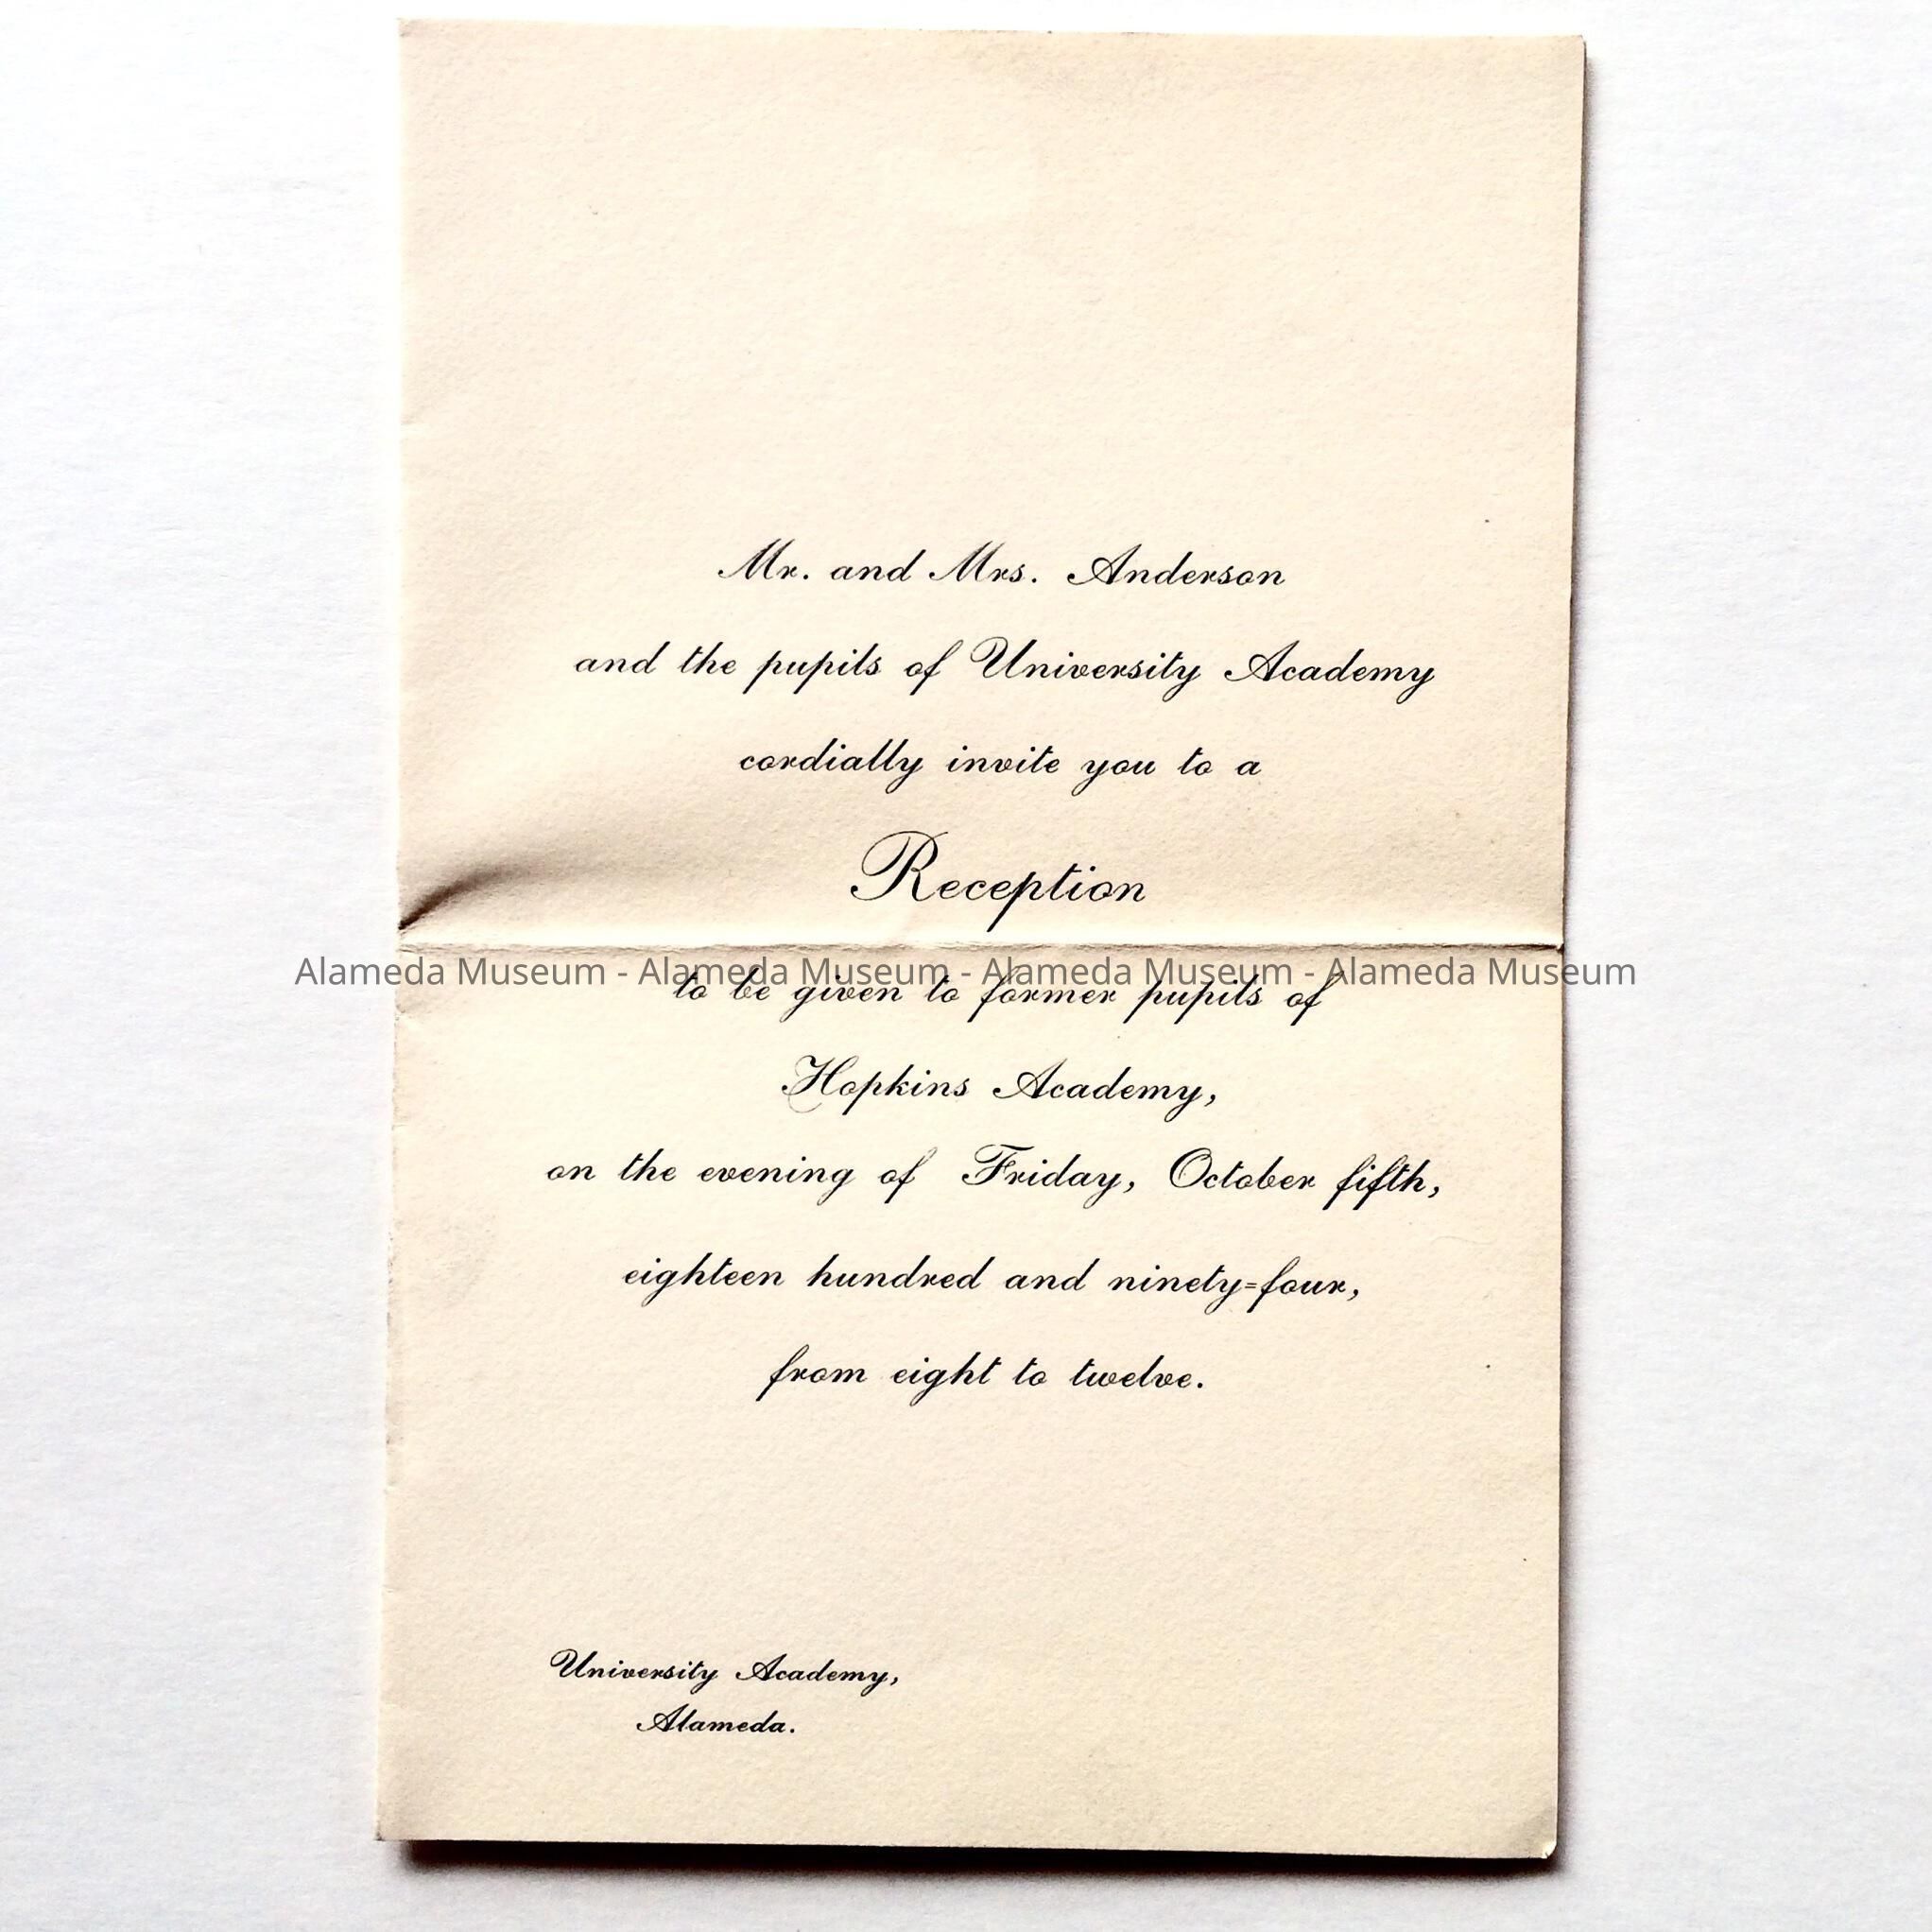 Mr. and Mrs. Anderson
and the pupils of University Academy
cordially invite you to a
Reception
Alameda Museum - Alameda Museum - Alameda Museum - Alameda Museum
to be given to former pupils of
Hopkins Academy,
on the evening of Friday, October fifth,
eighteen hundred and ninety=four,
from eight to twelve.
University Academy,
Alameda.